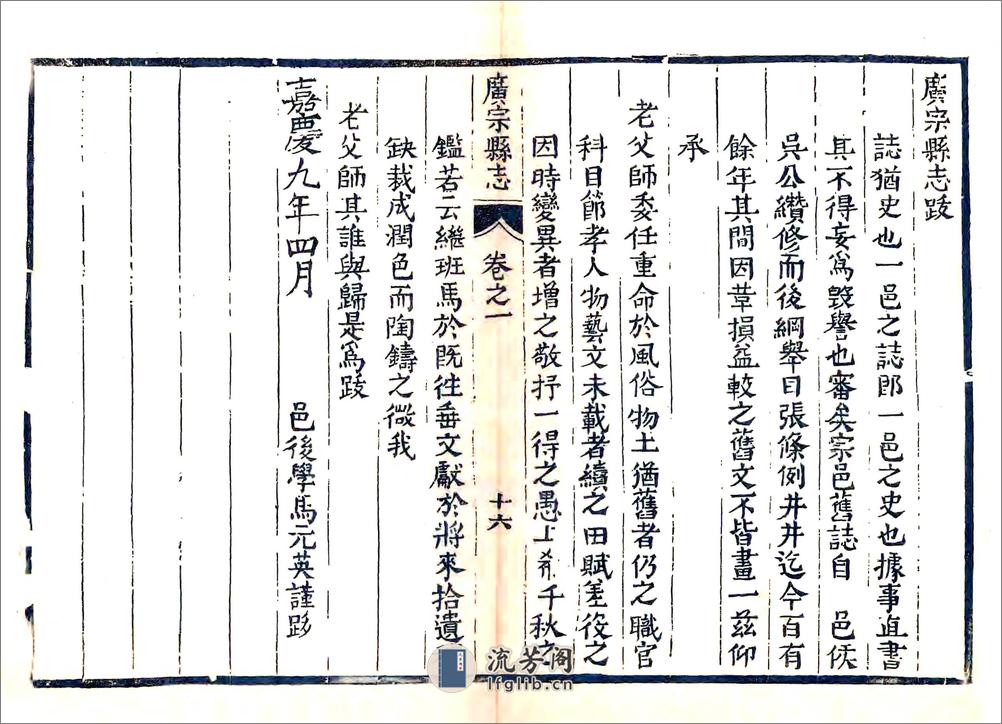 廣宗縣志跋
誌猶史也一邑之誌郎一邑之史也據事直書
其不得妄爲毀譽也審矣宗邑舊誌自 邑侯
吳公纘修而後綱舉目張條例井井迄今百有
餘年其間因革損益較之舊文不皆畫一茲仰
承
老父師委任重命於風俗物土猶舊者仍之職官
科目節孝人物藝文未載者續之田賦差役之
因時變異者增之敬抒一得之愚上希千秋之
廣宗縣志 卷之一 十六
鑑若云繼班馬於既徃垂文獻於將來拾遺
缺裁成潤色而陶鑄之微我
老父師其誰與歸是爲跋
嘉慶九年四月 邑後學馬元英謹跋
流芳阁
lfglib.cn